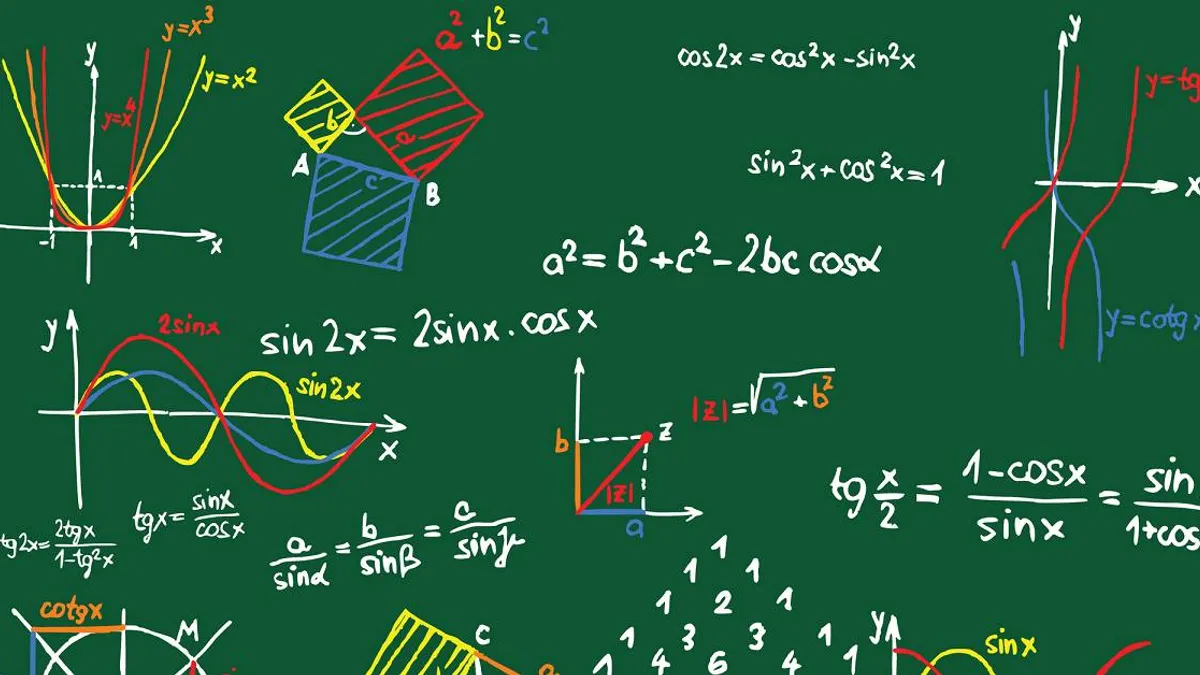 y=x³
y
y=x²
y=x⁴
1
-1
1
x
a²+b²=c²
b
a
A
c
B
cos2x=cos²x-sin²x
sin²x+cos²x=1
a²=b²+c²-2bc cosα
y
y=tg
x
y=cotgx
y
2sinx
sin2x
x
sin2x=2sinx·cosx
b
z
|z|
a
|z|=√a²+b²
tg x/2 = 1-cosx/sinx = sin/1+cos
tgx=sinx/cosx
tg2x=2tgx/1-tg²x
a/sinα = b/sinβ = c/sinγ
1
1 1
1 2 1
1 3 3 1
1 4 6 4 1
cotgx
M
C
y
sinx